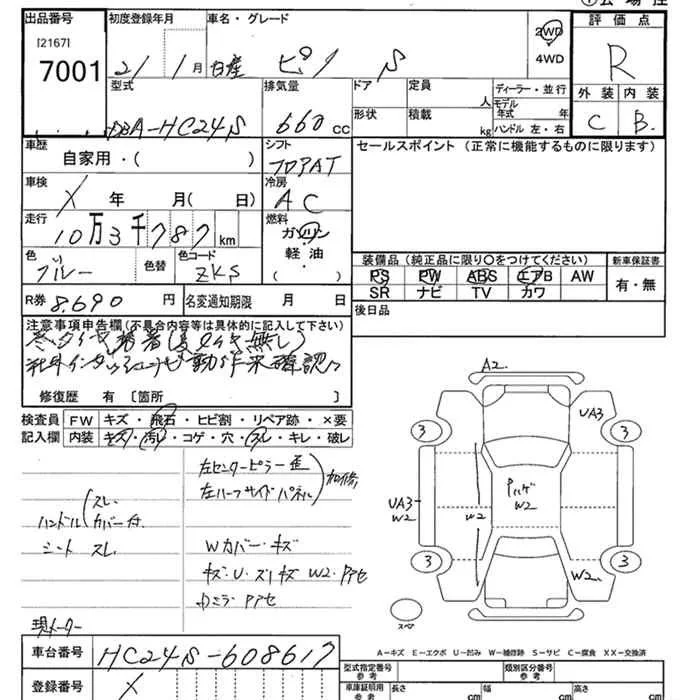 出品番号
[2167]
7001
初度登録年月
21 1月
車名・グレード
日産 ピノ S
2WD
4WD
評価点
R
外装 内装
C B.
型式
DBA-HC24S
排気量
660 cc
ドア
形状
定員
人
積載
kg
ディーラー・並行
モデル年式 年
ハンドル 左・右
車歴
自家用・( )
シフト
フロアAT
セールスポイント (正常に機能するものに限ります)
車検
X 年 月( 日)
冷房
AC
走行
10万3千787km
燃料
ガソリン
軽・油
( )
色
ブルー
色替
色コード
ZKS
装備品 (純正品に限り○をつけてください)
PS PW ABS エアB AW
SR ナビ TV カワ
新車保証書
有・無
R券 8,690 円
名変通知期限 月 日
後日品
注意事項申告欄(不具合内容等は具体的に記入して下さい)
冬タイヤ装着(夏タイヤ無し)
修復歴 有 [箇所 ]
検査員
記入欄
FW キズ・飛石・ヒビ割・リペア跡・×要
内装 キズ・汚レ・コゲ・穴・スレ・キレ・破レ
ハンドル(スレ.
カバー付.
シート スレ.
左センターピラー歪
左ハーフサイドパネル
加修
Wカバー・キズ
キズ・U・スリキズ W2・アセ
カミラーアセ
A2.
UA3
3
3
UA3
W2
W2
W2
3
3
W2.
スペア
現メーター
A-キズ E-エクボ U-凹み W-補修跡 S-サビ C-腐食 XX-交換済
車台番号
HC24S-608617
登録番号
X
型式指定番号
参考
類別区分番号
参考
車庫証明用
参考
長さ cm
幅 cm
高さ cm